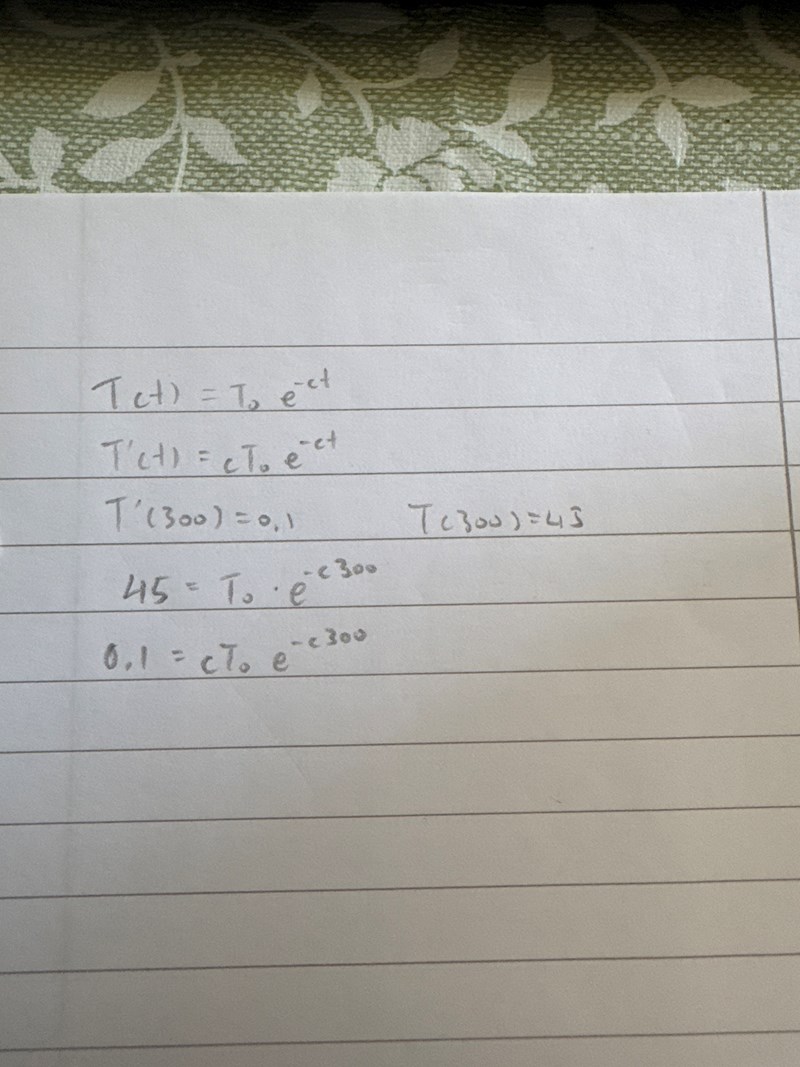 T(t) = T₀ e^{-ct}
T'(t) = cT₀ e^{-ct}
T'(300) = 0,1 T(300) = 45
45 = T₀ · e^{-c300}
0,1 = cT₀ e^{-c300}